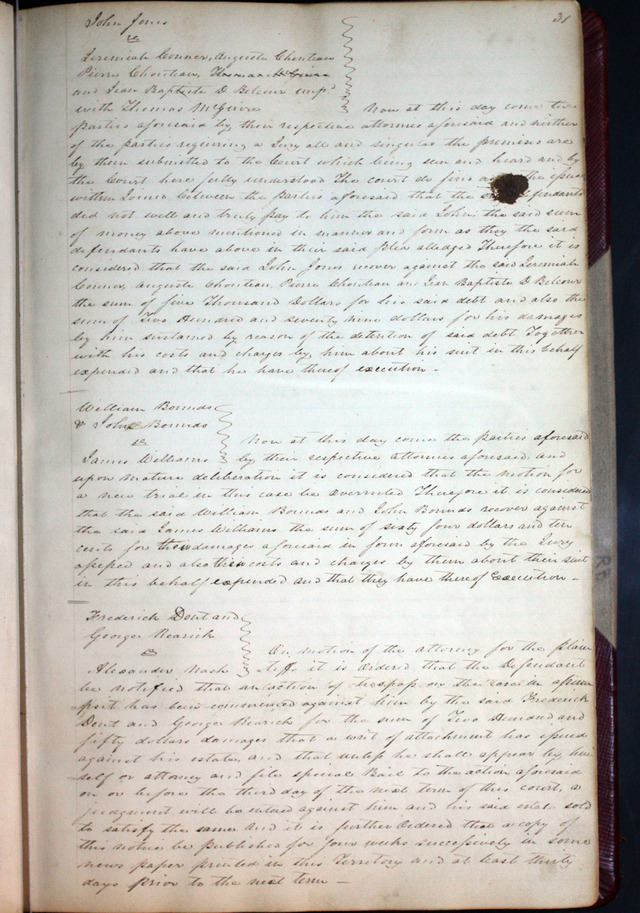 31
John Jones
vs
Jeremiah Connor, Auguste Chouteau
Pierre Chouteau,
and Jean Baptiste D Belcour imp.d
with Thomas McGuire Now at this day come the
parties aforesaid by their respective attornies aforesaid and neither
of the parties requiring a Jury all and singular the premises are
by them submitted to the Court which being seen and heard and by
the Court here fully understood The court do find the issue
within Joined between the parties aforesaid that the defendants
did not well and truly pay to him the said John the said sum
of money above mentioned in manner and form as they the said
defendants have above in their said plea alledged Therefore it is
considered that the said John Jones recover against the said Jeremiah
Connor, Auguste Chouteau, Pierre Chouteau and Jean Baptiste D Belcour
the sum of five Thousand Dollars for his said debt and also the
sum of Two Hundred and seventy nine dollars for his damages
by him sustained by reason of the detention of said debt Together
with his costs and charges by him about his suit in this behalf
expended and that he have thereof execution -
William Bounds
& John Bounds
vs Now at this day come the parties aforesaid
James Williams by their respective attornies aforesaid and
upon mature deliberation it is considered that the motion for
a new trial in this case be overruled Therefore it is considered
that the said William Bounds and John Bounds recover against
the said James Williams the sum of sixty four dollars and ten
cents for their damages aforesaid in form aforesaid by the Jury
assessed and also their costs and charges by them about their suit
in this behalf expended and that they have thereof Execution -
Frederick Dent and
George Rearick
vs On motion of the attorney for the plain
Alexander Nash tiffs it is Ordered that the Defendant
be notified that an action of trespass on the case in assum
psit has been commenced against him by the said Frederick
Dent and George Rearick for the sum of Two Hundred and
fifty dollars damages that a writ of attachment has issued
against his estate, and that unless he shall appear by him
self or attorney and file special Bail to the action aforesaid
on or before the third day of the next term of this court, a
judgment will be entered against him and his said estate sold
to satisfy the same And it is further Ordered that a copy of
this notice be published for four weeks successively in some
news paper printed in this Territory and at least thirty
days prior to the next term -